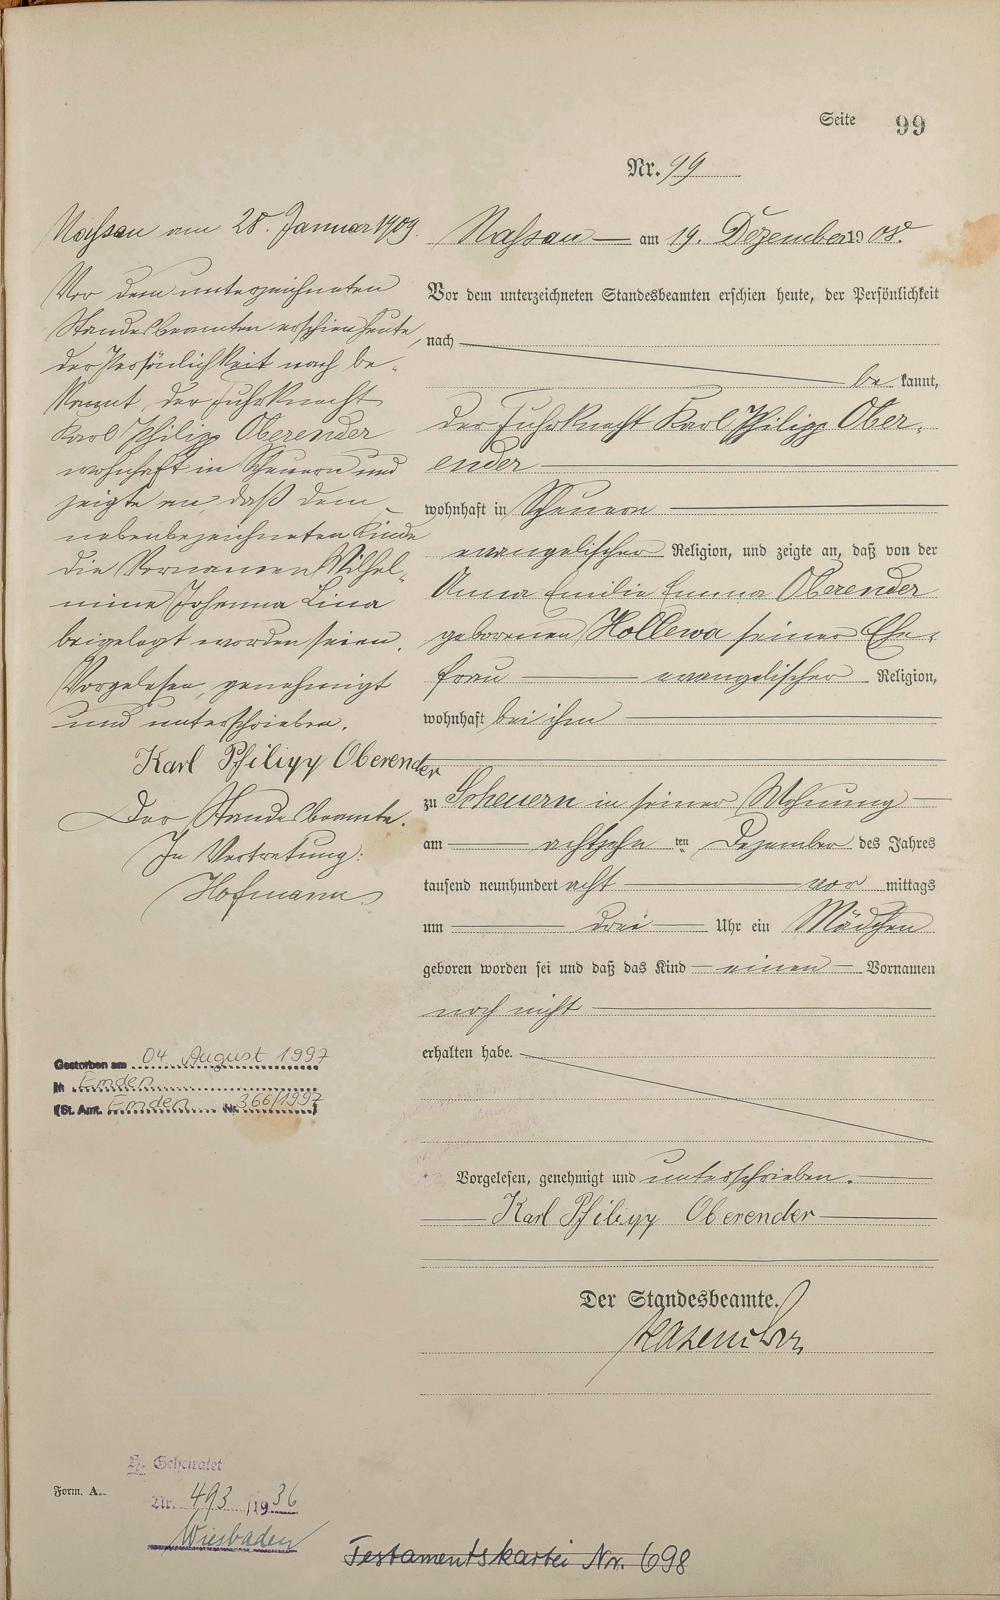 Seite 99
Nr. 99
Nassau am 28. Januar 1909.
Vor dem unterzeichneten
Standesbeamten erschien heute,
der Persönlichkeit nach be-
kannt, der Fuhrknecht
Karl Philipp Oberender
wohnhaft in Scheuern und
zeigte an, daß dem
nebenbezeichneten Kinde
die Vornamen Wilhel-
mine Johanna Lina
beigelegt worden seien.
Vorgelesen, genehmigt
und unterschrieben.
Karl Philipp Oberender
Der Standesbeamte.
In Vertretung:
Hofmann
Gestorben am 04. August 1997
in Emden
(St. Amt. Emden Nr. 366/1997)
Nassau am 19. Dezember 1908.
Vor dem unterzeichneten Standesbeamten erschien heute, der Persönlichkeit
nach
be kannt,
der Fuhrknecht Karl Philipp Ober-
ender
wohnhaft in Scheuern
evangelischer Religion, und zeigte an, daß von der
Anna Emilie Emma Oberender
geborenen Hollewa seiner Ehe-
frau evangelischer Religion,
wohnhaft bei ihm
zu Scheuern in seiner Wohnung
am achtzehn ten Dezember des Jahres
tausend neunhundert acht vor mittags
um drei Uhr ein Mädchen
geboren worden sei und daß das Kind einen Vornamen
noch nicht
erhalten habe.
Vorgelesen, genehmigt und unterschrieben.
Karl Philipp Oberender
Der Standesbeamte.
Geheiratet
Form. A.
Nr. 493 /1936
Wiesbaden
Testamentskartei Nr. 698